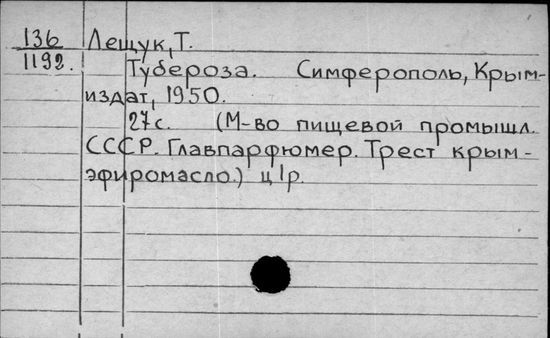 136 Лещук, Т.
1192. Тубероза. Симферополь, Крым-
издат, 1950.
27 с. (М-во пищевой промышл.
СССР. Главпарфюмер. Трест крым-
эфиромасло.) ц 1 р.